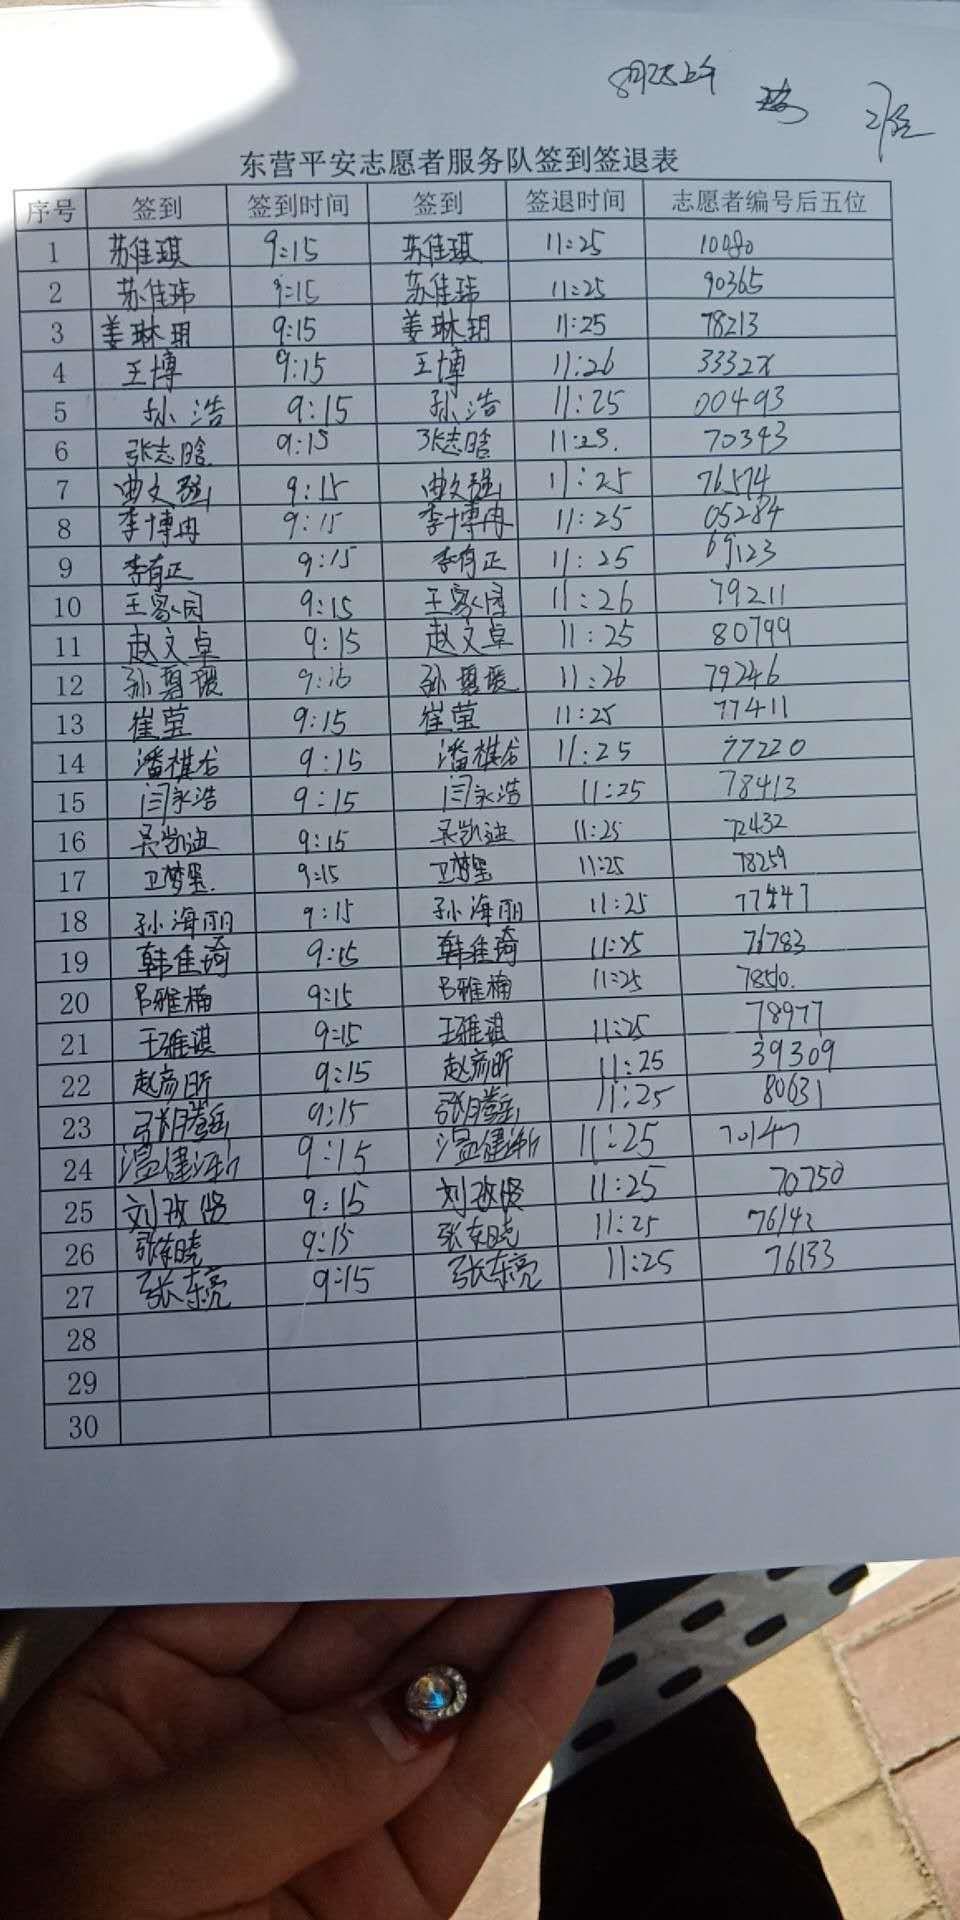 8月25上午
东营平安志愿者服务队签到签退表
序号 签到 签到时间 签到 签退时间 志愿者编号后五位
1 苏佳琪 9:15 苏佳琪 11:25 10080
2 苏佳玮 9:15 苏佳玮 11:25 90365
3 姜琳玥 9:15 姜琳玥 11:25 78213
4 王博 9:15 王博 11:26 3332X
5 孙浩 9:15 孙浩 11:25 00493
6 张志晗 9:15 张志晗 11:25. 70343
7 曲文强 9:15 曲文强 11:25 76574
8 李博冉 9:15 李博冉 11:25 05284
9 李有正 9:15 李有正 11:25 69123
10 王家园 9:15 王家园 11:26 79211
11 赵文卓 9:15 赵文卓 11:25 80799
12 9:16 11:26 79246
13 崔莹 9:15 崔莹 11:25 77411
14 潘棋龙 9:15 潘棋龙 11:25 77220
15 闫永浩 9:15 闫永浩 11:25 78413
16 吴凯迪 9:15 吴凯迪 11:25 72432
17 卫梦星. 9:15 卫梦星 11:25 78259
18 孙海丽 9:15 孙海丽 11:25 77447
19 韩佳琦 9:15 韩佳琦 11:25 76783
20 吕雅楠 9:15 吕雅楠 11:25 78510.
21 王雅淇 9:15 王雅淇 11:25 78977
22 赵彦昕 9:15 赵彦昕 11:25 39309
23 张腾岳 9:15 张腾岳 11:25 80631
24 温健渐 9:15 11:25 70147
25 9:15 11:25 70750
26 张东晓 9:15 张东晓 11:25 76142
27 张东亮 9:15 张东亮 11:25 76133
28
29
30